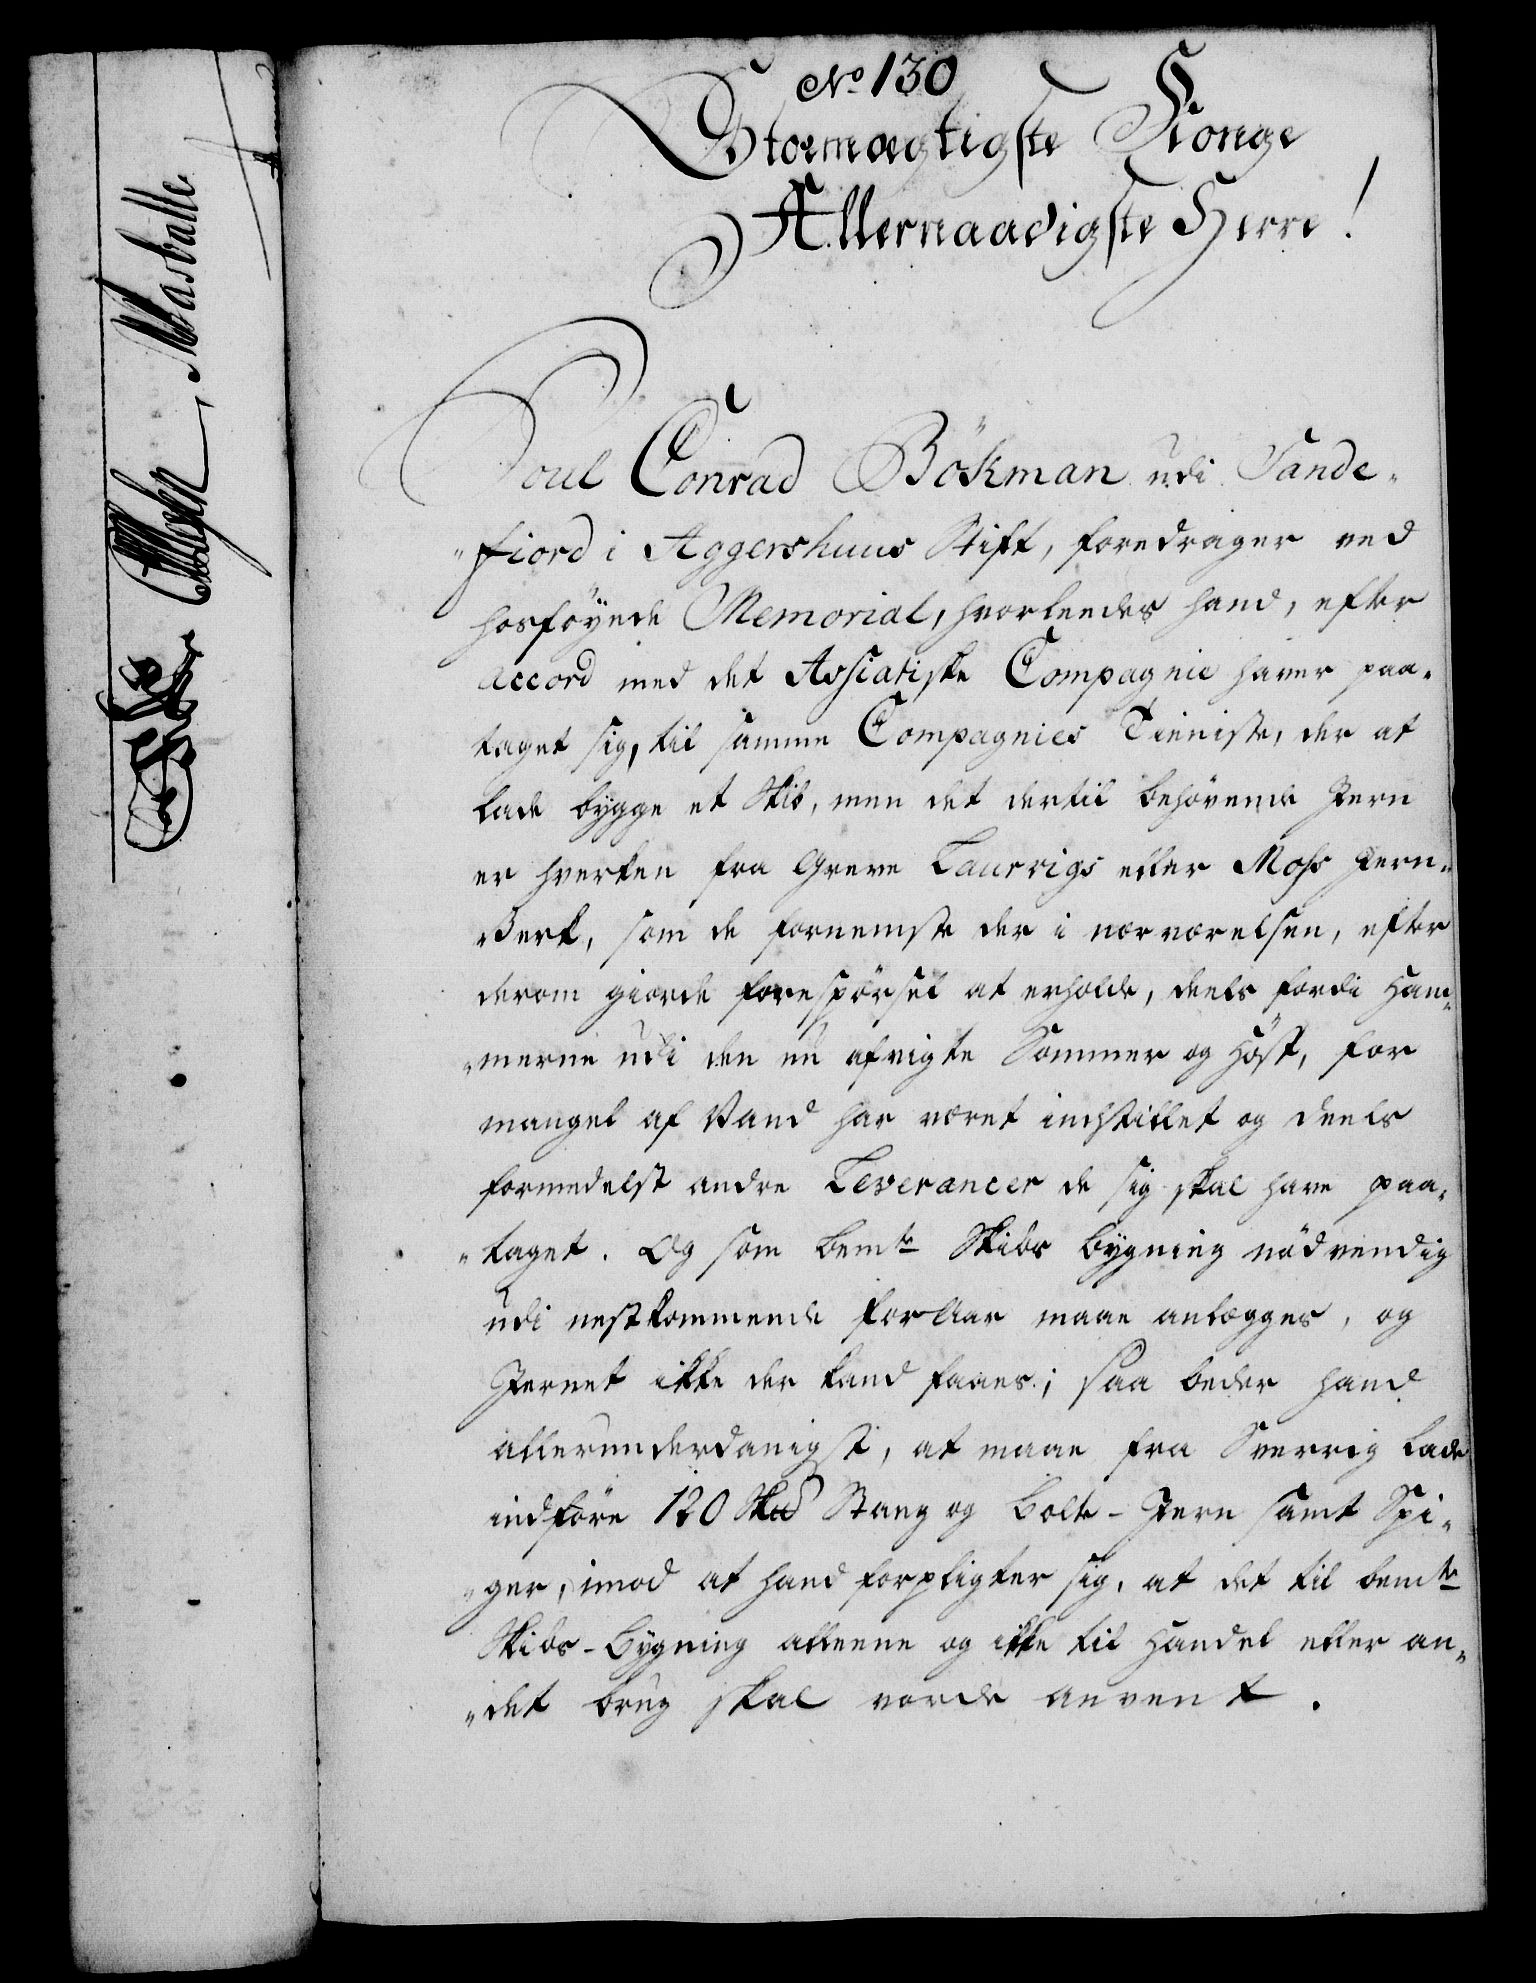 No 130
Stormægtigste Konge
Allernaadigste Herre!
Poul Conrad Bökman udi Sande-
fiord i Aggershuus Stift, foredrager ved
hosföyede Memorial, hvorleedes hand, efter
accord med det Assiatiske Compagnie haver paa-
taget sig, til samme Compagnies Tieniste, der at
lade bygge et Skib, men det dertil behövende Jern
er hverken fra Greve Laurvigs eller Moss Jern-
Verk, som de fornemste der i nærværelsen, efter
derom giorde forespörsel at erholde, deels fordi Ham-
merne udi den nu afvigte Sommer og Höst, for
mangel af Vand har været indstillet og deels
formedelst andre Leverancer de sig skal have paa-
taget. Og som bemte Skibs bygning nödvendig
udi nestkommende for Aar maae anlægges, og
Jernet ikke der kand faaes; saa beder hand
allerunderdanigst, at maae fra Sverrig lade
indföre 120 Sk℔ Stang og Bolte-Jern samt Spi-
ger, imod at hand forpligter sig, at det til bemte
Skibs-Bygning alleene og ikke til Handel eller an-
det brug skal vorde anvent.